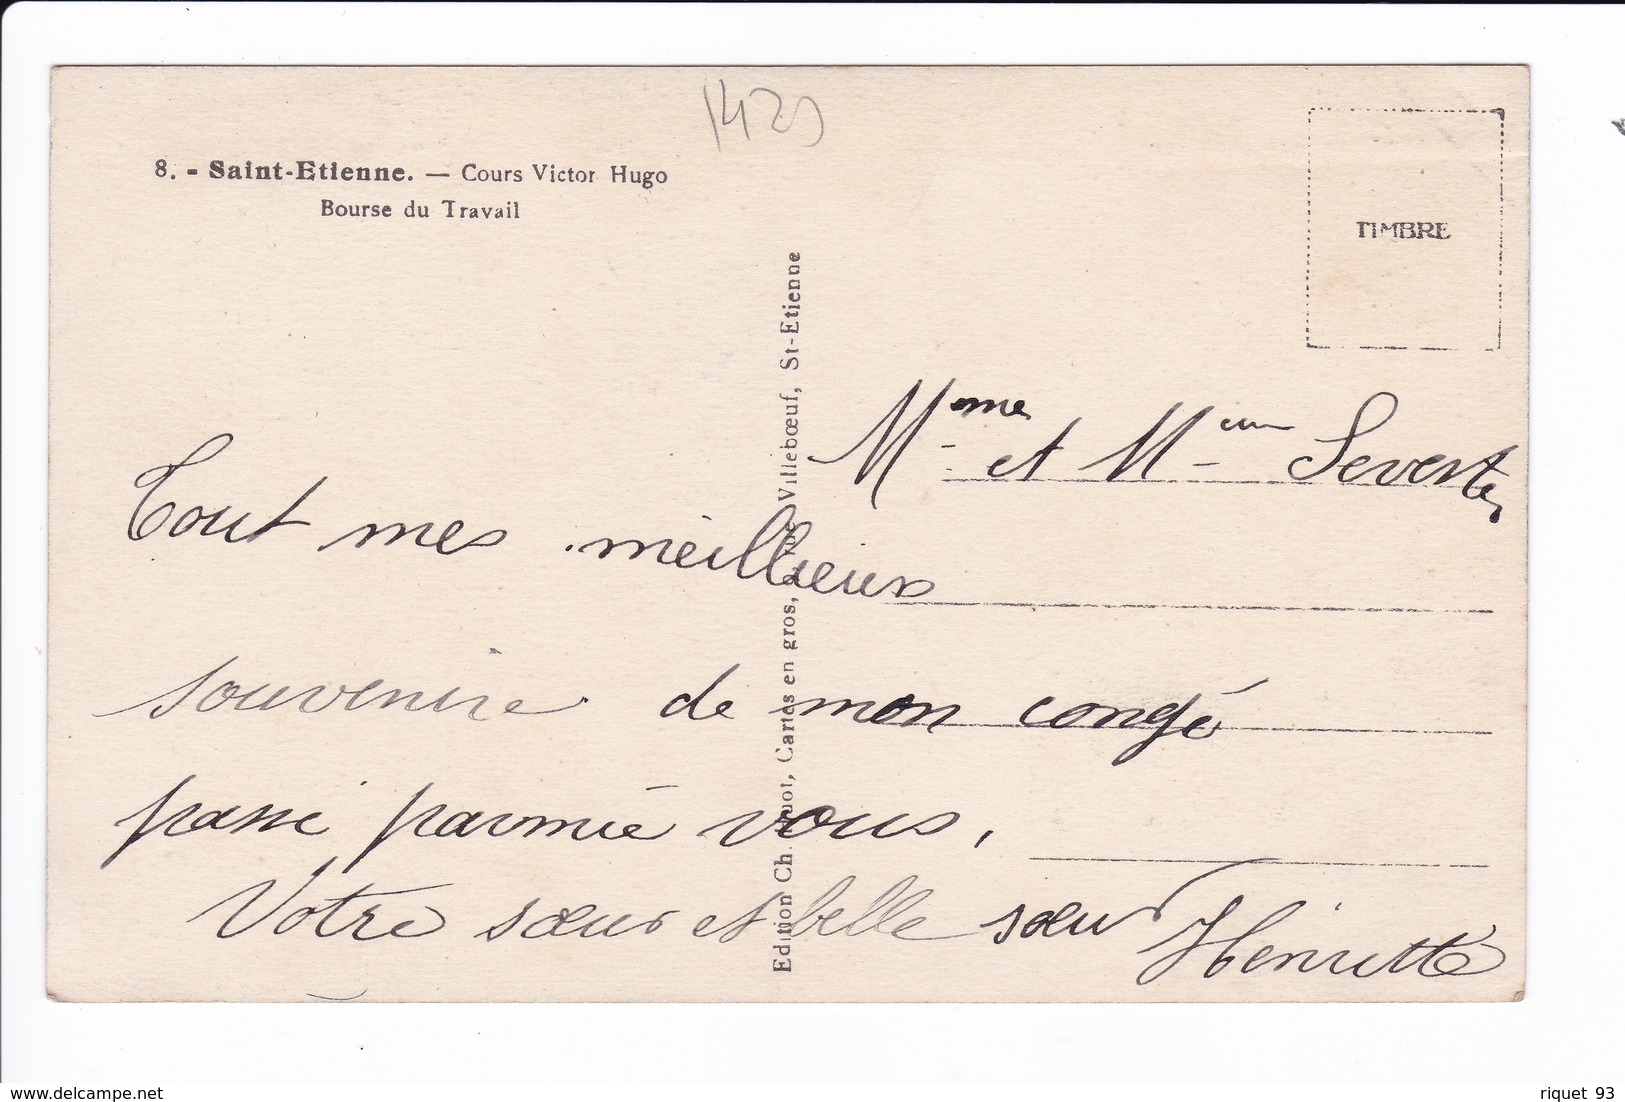 1420
8. - Saint-Etienne. — Cours Victor Hugo
Bourse du Travail
TIMBRE
Edition Ch. Cartes en gros, rue Villebœuf, St-Etienne
Mme et M Severt
Tout mes meillieurs
souvenire de mon congé
passé parmié vous,
Votre sœur et belle sœur
Henriette
www.delcampe.net
riquet 93